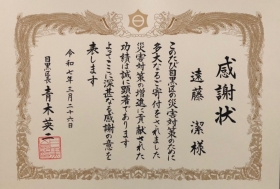 感謝状
遠藤 潔 様
このたび目黒区の災害対策のために
多大なるご寄付をされました
災害対策の増進に貢献された
功績は誠に顕著であります
よってここに深甚なる感謝の意を
表します
令和七年三月二十六日
目黒区長 青木英二